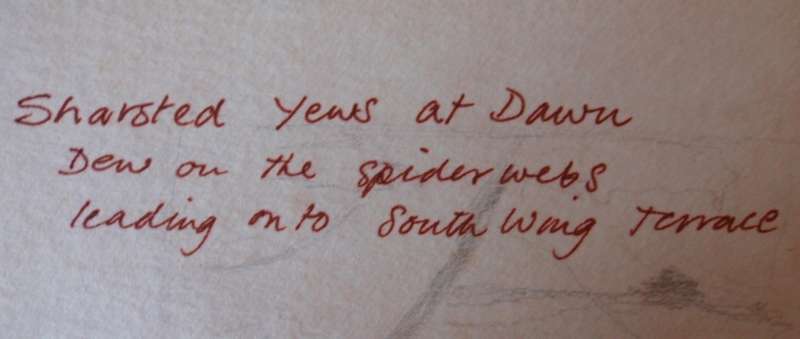 Sharsted Yews at Dawn
Dew on the spider webs
leading onto South Wing Terrace